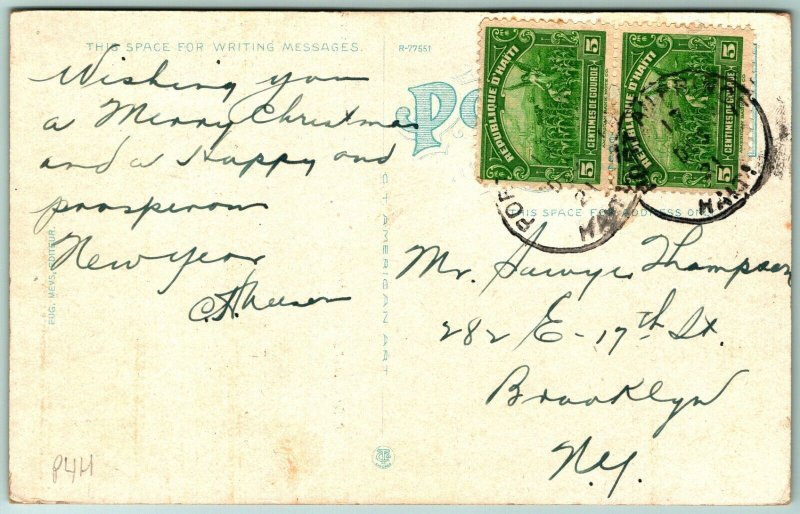 THIS SPACE FOR WRITING MESSAGES.
R-77551
Wishing you
a Merry Christmas
and a Happy and
prosperous
New Year
EUG. MEVS, EDITEUR.
C T AMERICAN ART
REPUBLIQUE D'HAITI
5
CENTIMES DE GOURDE
5
REPUBLIQUE D'HAITI
5
CENTIMES DE GOURDE
5
THIS SPACE FOR ADDRESS ONLY
Mr. Sawyer Thompson
282 E-17th St.
Brooklyn
N.Y.
P4H